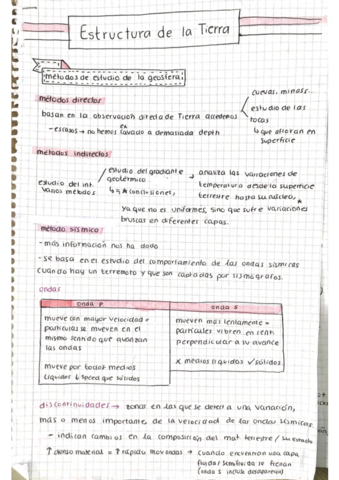 Estructura de la Tierra
métodos de estudio de la geosfera.
métodos directos
cuevas, minas...
basan en la observación directa de Tierra
estudio de las
rocas
escasos → no hemos a demasiada
↳ que afloran en
superficie
métodos indirectos
estudio del int.
varios métodos
estudio del gradiante
geotérmico
analiza las variaciones de
temperatura desde la superficie
terrestre hasta su núcleo,
Ya que no es uniforme, sino que sufre variaciones
bruscas en diferentes capas.
método sísmico
- más información nos ha dado
- se basa en el estudio del comportamiento de las ondas sísmicas
cuando hay un terremoto y que son captadas por sismógrafos.
ondas
onda P
onda S
mueve con mayor velocidad =
partículas se mueven en el
mismo sentido que avanzan
las ondas
mueve por
líquidos que sólidos
mueven más lentamente =
partículas vibren en
perpendicular a su avance
x medios líquidos ✓ sólidos.
discontinuidades → zonas en las que se detecta una variación,
más o menos importante, de la velocidad de las ondas sísmicas.
- indican cambios en la composición del mat terrestre / su estado
↑ denso material = ↑ rápido ondas →
cuando encuentran una capa
se frenan
(ondas S incluso desaparecen)